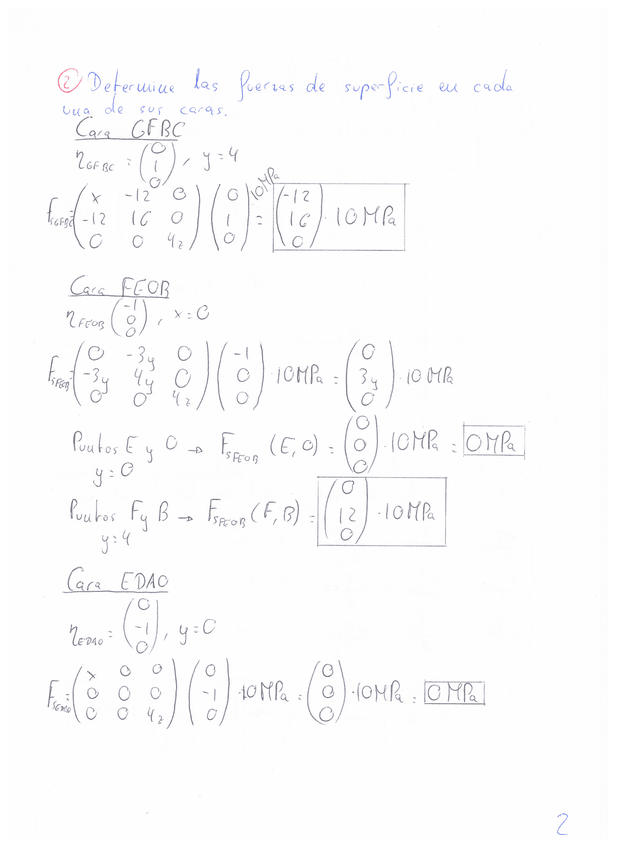 ② Determine las fuerzas de superficie en cada
una de sus caras.
Cara GFBC
η_GFBC = (0 1 0), y=4
F_sGFBC = (x -12 0; -12 16 0; 0 0 4z) (0 1 0) 10MPa = (-12 16 0) · 10MPa
Cara FEOB
η_FEOB (-1 0 0), x=0
F_sFEOB = (0 -3y 0; -3y 4y 0; 0 0 4z) (-1 0 0) · 10MPa = (0 3y 0) · 10MPa
Puntos E y O → F_sFEOB (E,O) = (0 0 0) · 10MPa = 0MPa
y=0
Puntos F y B → F_sFEOB (F,B) = (0 12 0) · 10MPa
y=4
Cara EDAO
η_EDAO = (0 -1 0), y=0
F_sEDAO = (x 0 0; 0 0 0; 0 0 4z) (0 -1 0) · 10MPa = (0 0 0) · 10MPa = 0MPa
2